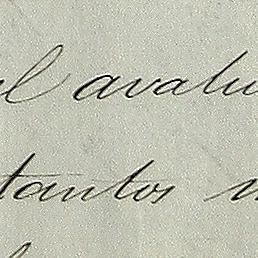 el avalu
tantos